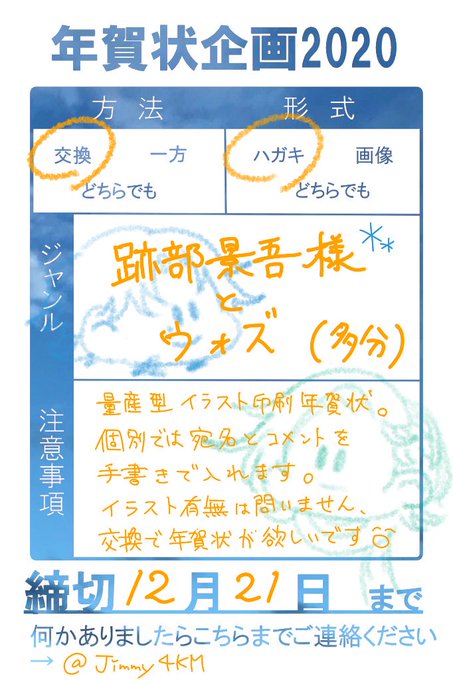 年賀状企画2020
方法
形式
交換 一方
どちらでも
ハガキ 画像
どちらでも
ジャンル
跡部景吾様
と
ウォズ (多分)
注意事項
量産型イラスト印刷年賀状。
個別では宛名とコメントを
手書きで入れます。
イラスト有無は問いません、
交換で年賀状が欲しいです
締切12月21日 まで
何かありましたらこちらまでご連絡ください
→ @Jimmy4KM